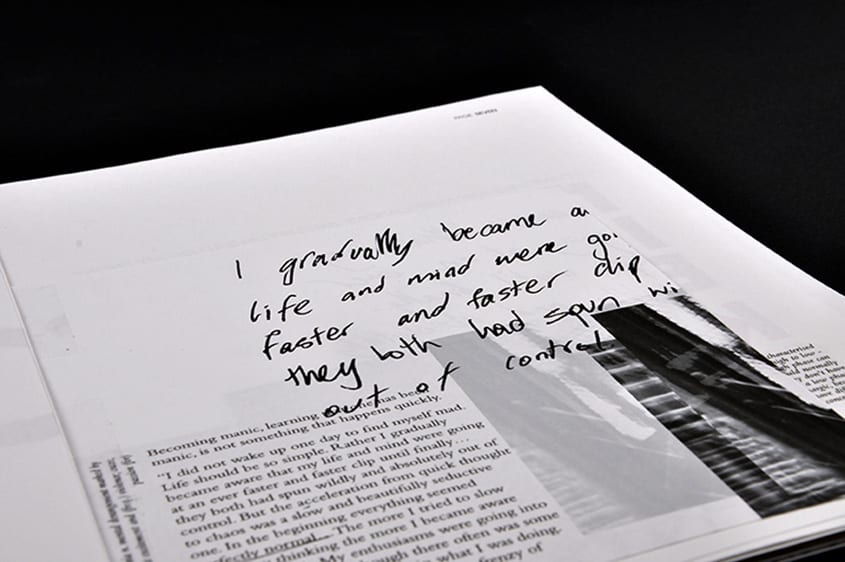 PAGE SEVEN
I gradually became a
life and mind were
faster and faster clip
they both had spun wi
out of control
Becoming manic, learning he has be
manic, is not something that happens quickly.
"I did not wake up one day to find myself mad.
Life should be so simple. Rather I gradually
became aware that my life and mind were going
at an ever faster and faster clip until finally...
they both had spun wildly and absolutely out of
control. But the acceleration from quick thought
to chaos was a slow and beautifully seductive
one. In the beginning everything seemed
fectly normal... The more I tried to slow
thinking the more I became aware
My enthusiasms were going into
ugh there often was some
n what I was doing.
frenzy of
characterised
high to low -
phase can
and normally
y don't have
a low phase